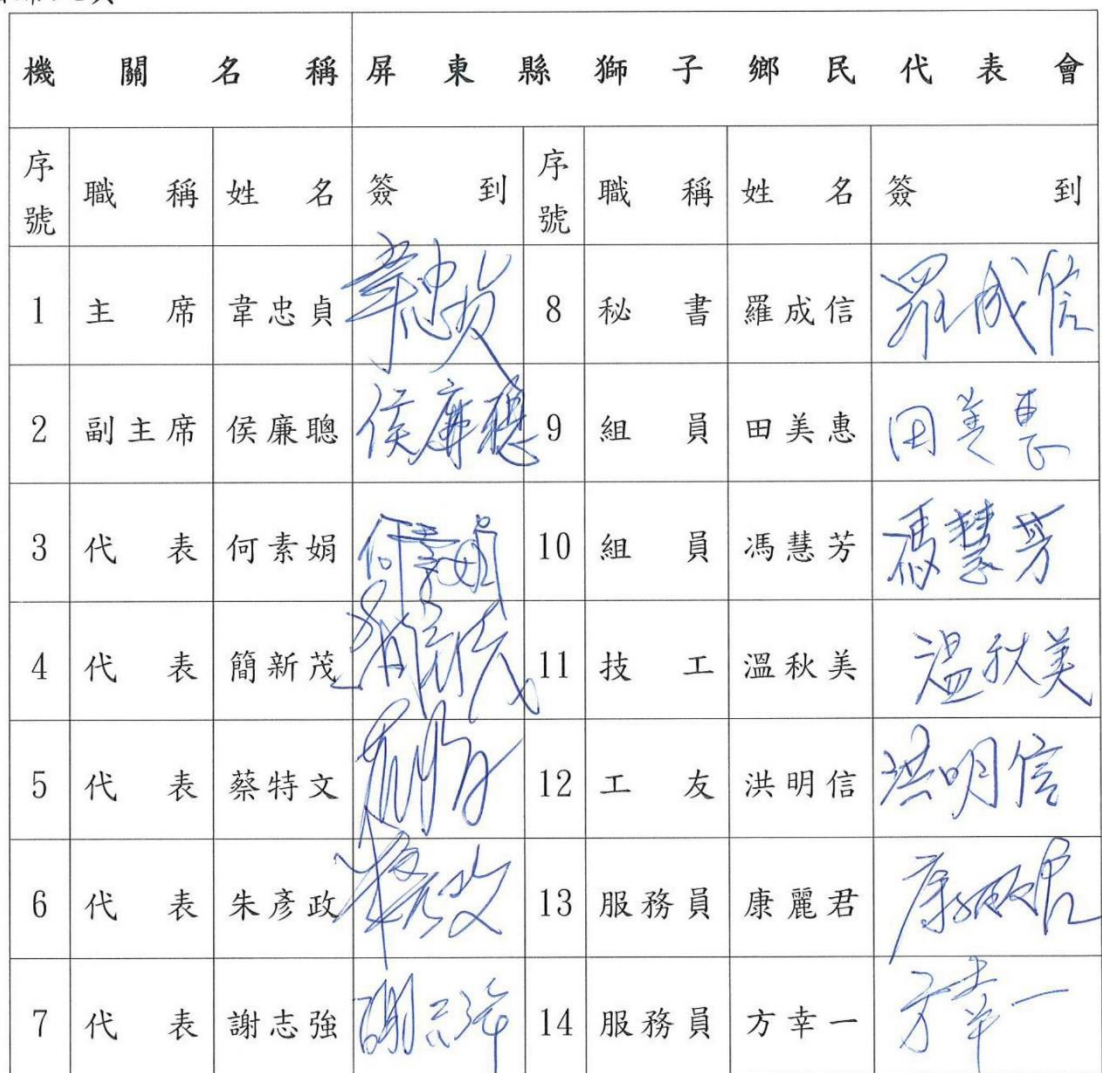 機關名稱 屏東縣獅子鄉民代表會
序號 職稱 姓名 簽到 序號 職稱 姓名 簽到
1 主席 韋忠貞 韋忠貞 8 秘書 羅成信 羅成信
2 副主席 侯廉聰 侯廉聰 9 組員 田美惠 田美惠
3 代表 何素娟 何素娟 10 組員 馮慧芳 馮慧芳
4 代表 簡新茂 11 技工 溫秋美 温秋美
5 代表 蔡特文 12 工友 洪明信 洪明信
6 代表 朱彥政 朱彥政 13 服務員 康麗君 康麗君
7 代表 謝志強 謝志強 14 服務員 方幸一 方幸一